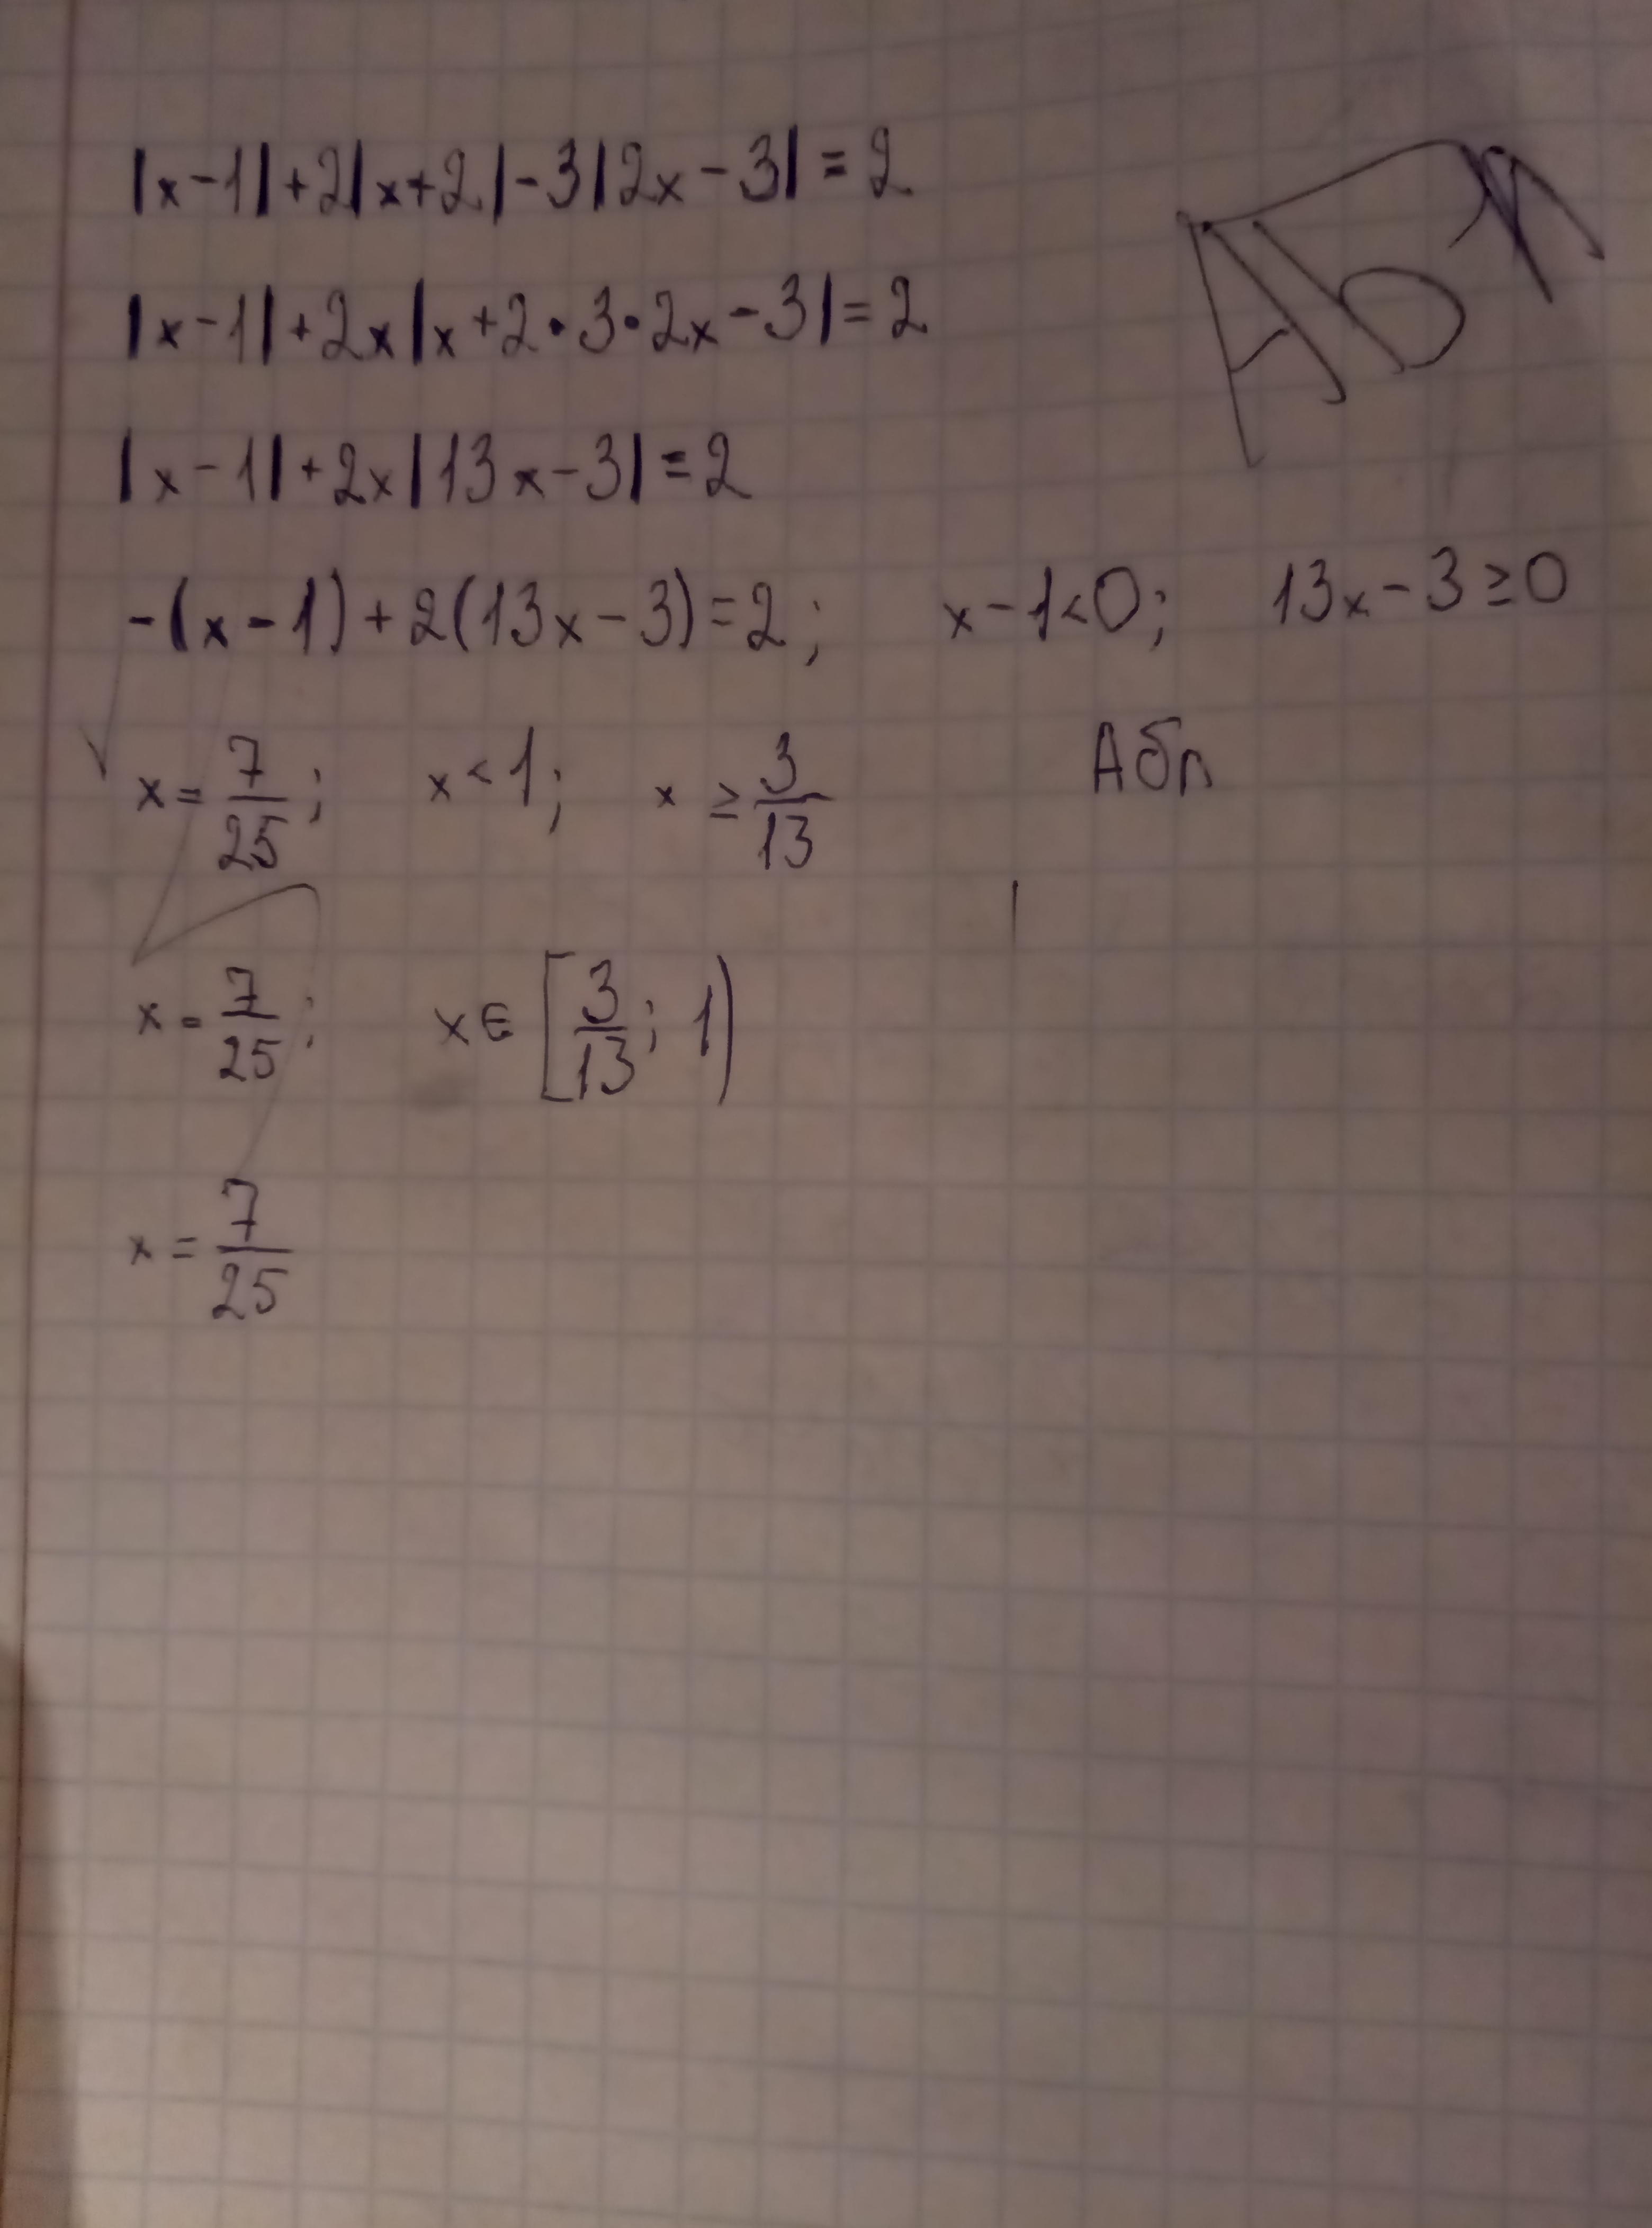 |x-1|+2|x+2|-3|2x-3|=2
|x-1|+2x|x+2·3·2x-3|=2
|x-1|+2x|13x-3|=2
-(x-1)+2(13x-3)=2; x-1<0; 13x-3≥0
x=7/25; x<1; x≥3/13
Абп
x=7/25; x∈[3/13; 1)
x=7/25